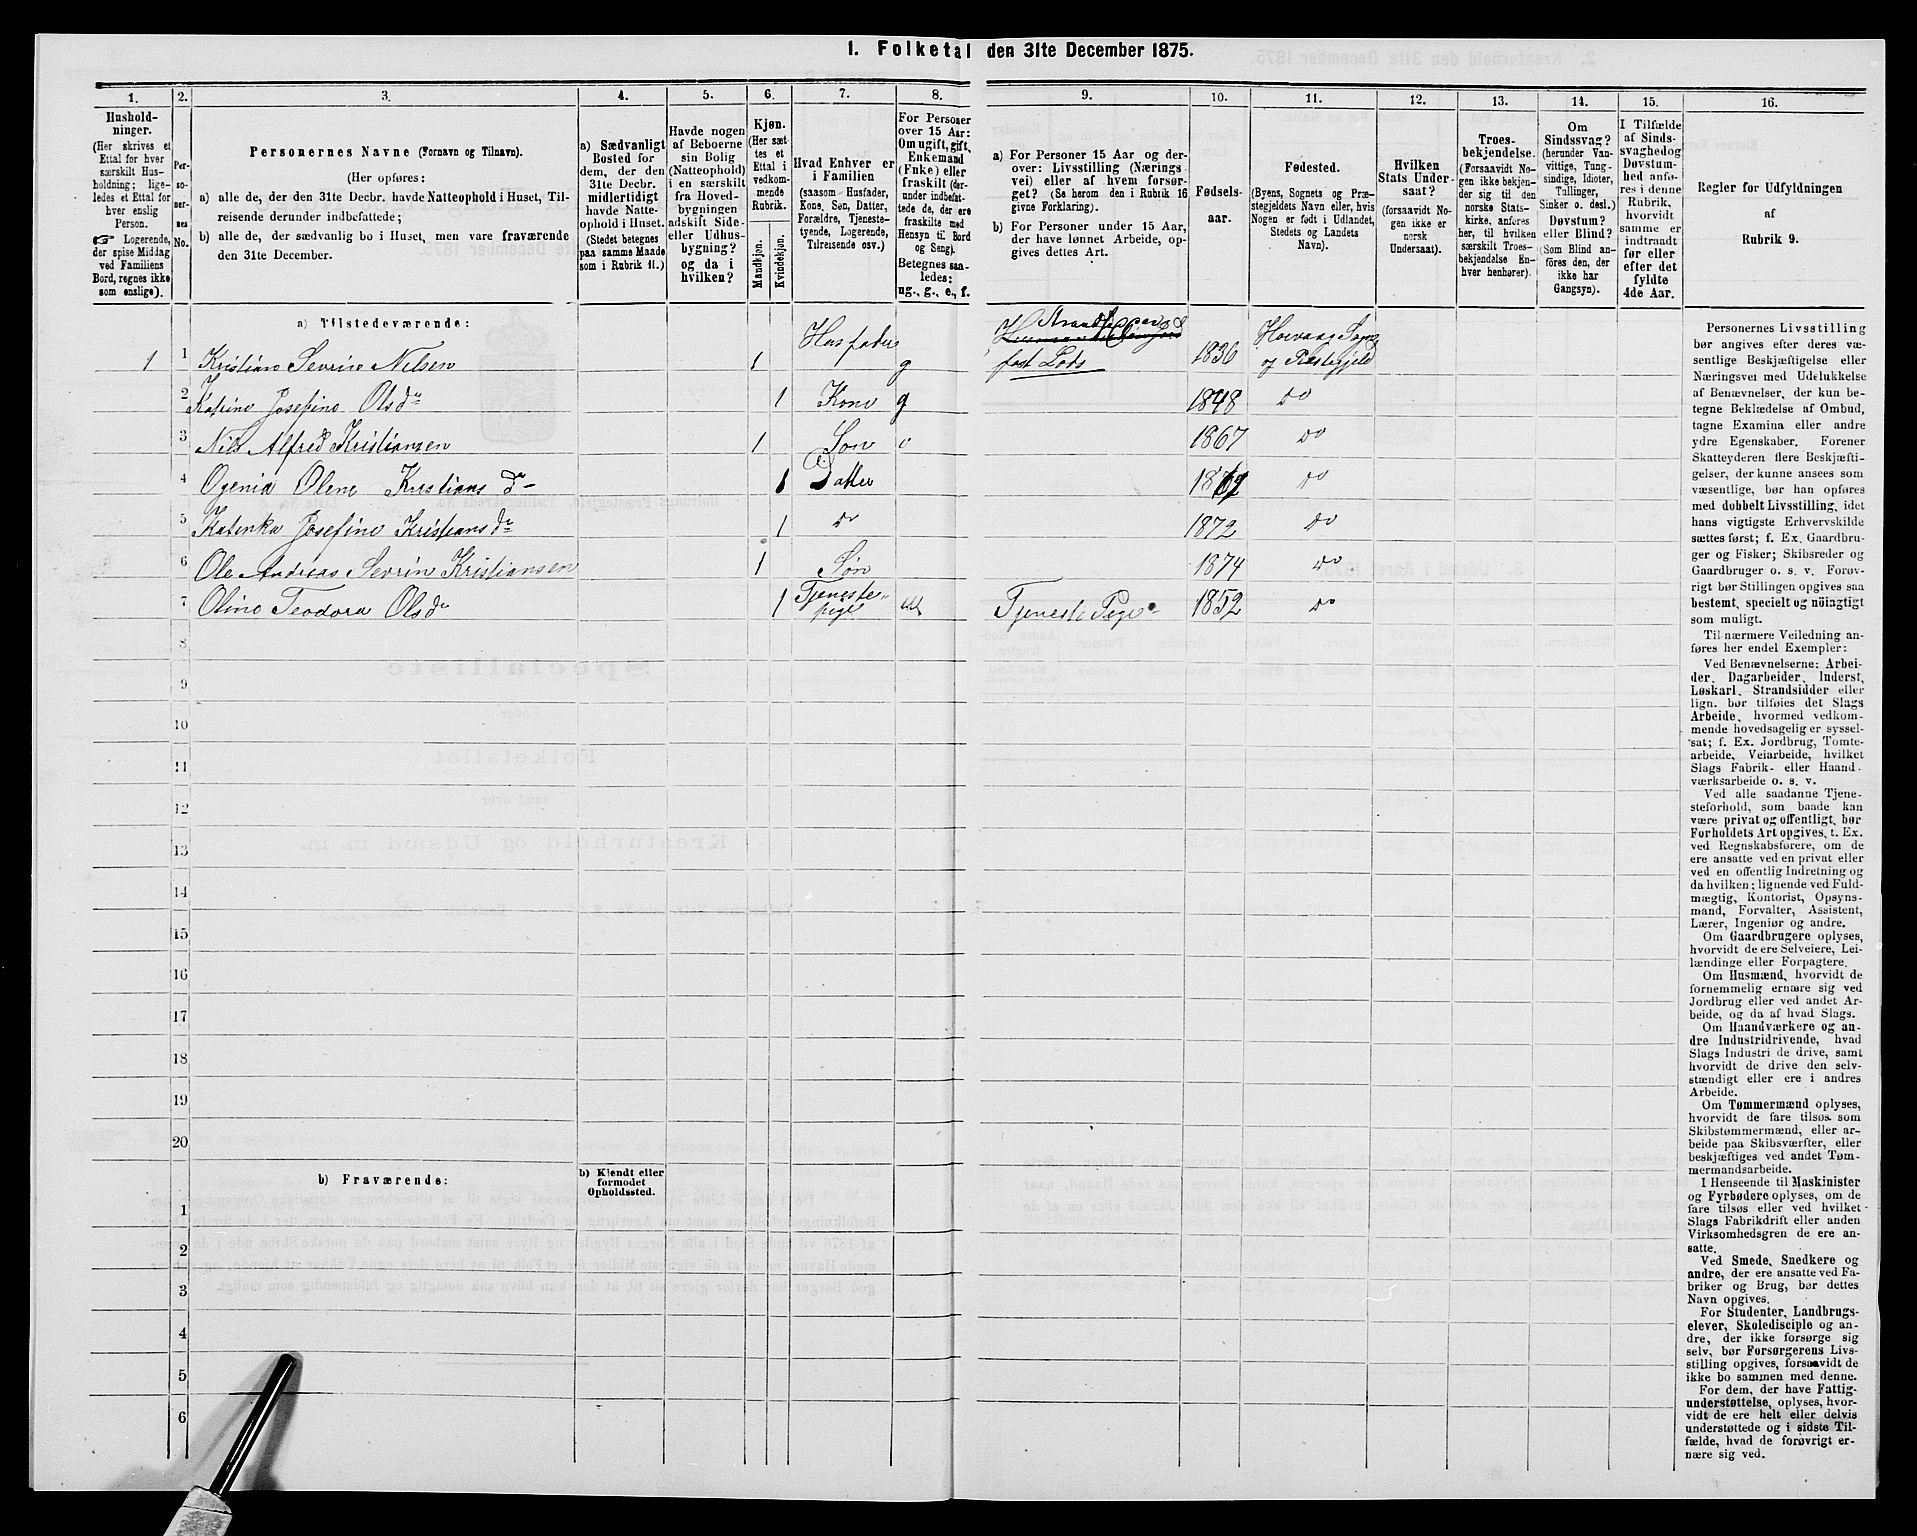 1. Folketal den 31te December 1875.
1. 2. 3. 4. 5. 6. 7. 8. 9. 10. 11. 12. 13. 14. 15. 16.
Hushold-
ninger.
(Her skrives et
Ettal for hver
særskilt Hus-
holdning; lige-
ledes et Ettal for
hver enslig
Person.
☞ Logerende,
der spise Middag
ved Familiens
Bord, regnes ikke
som enslige).
Per-
so-
ner-
nes
No.
Personernes Navne (Fornavn og Tilnavn).
(Her opføres:
a) alle de, der den 31te Decbr. havde Natteophold i Huset, Til-
reisende derunder indbefattede;
b) alle de, der sædvanlig bo i Huset, men vare fraværende
den 31te December.
a) Sædvanligt
Bosted for
dem, der den
31te Decbr.
midlertidigt
havde Natte-
ophold i Huset.
(Stedet betegnes
paa samme Maade
som i Rubrik 11.)
Havde nogen
af Beboerne
sin Bolig
(Natteophold)
i en særskilt
fra Hoved-
bygningen
adskilt Side-
eller Udhus-
bygning?
og da i
hvilken?
Kjøn.
(Her sæt-
tes et
Ettal i
vedkom-
mende
Rubrik.
Mandkjøn.
Kvindekjøn.
Hvad Enhver er
i Familien
(saasom Husfader,
Kone, Søn, Datter,
Forældre, Tjeneste-
tyende, Logerende,
Tilreisende osv.)
For Personer
over 15 Aar:
Om ugift, gift,
Enkemand
(Enke) eller
fraskilt (der-
under indbefat-
tede de, der ere
fraskilte med
Hensyn til Bord
og Seng).
Betegnes saa-
ledes:
ug., g., e., f.
a) For Personer 15 Aar og der-
over: Livsstilling (Nærings
vei) eller af hvem forsør-
get? (Se herom den i Rubrik 16
givne Forklaring).
b) For Personer under 15 Aar,
der have lønnet Arbeide, op-
gives dettes Art.
Fødsels-
aar.
Fødested.
(Byens, Sognets og Præ-
stegjeldets Navn eller, hvis
Nogen er født i Udlandet,
Stedets og Landets
Navn).
Hvilken
Stats Under-
saat?
(forsaavidt No-
gen ikke er
norsk
Undersaat).
Troes-
bekjendelse.
(Forsaavidt No-
gen ikke bekjen-
der sig til den
norske Stats-
kirke, anføres
her, til hvilken
særskilt Troes-
bekjendelse En-
hver henhører).
Om
Sindssvag?
(herunder Van-
vittige, Tung-
sindige, Idioter,
Tullinger,
Sinker o. desl.)
Døvstum?
eller Blind?
(Som Blind an-
føres den, der
ikke har
Gangsyn).
I Tilfælde
af Sinds-
svaghed og
Døvstum-
hed anfø-
res i denne
Rubrik,
hvorvidt
samme er
indtraadt
før eller
efter det
fyldte
4de Aar.
Regler for Udfyldningen
af
Rubrik 9.
a) Tilstedeværende:
1 1 Kristian Sevrin Nilsen 1 Husfader g fast Lods 1836 Høivaag Sogn
og Præstegjeld
2 Katrine Josefine Olsdr 1 Kone g 1848 do
3 Nils Alfred Kristiansen 1 Søn 1867 do
4 Ogenia Olene Kristiansdr 1 Datter do
5 Katinka Josefine Kristiansdr 1 do 1872 do
6 Ole Andreas Sevrin Kristiansen 1 Søn 1874 do
7 Oline Teodora Olsdr 1 Tjeneste-
pige Tjeneste Pige 1852 do
8
9
10
11
12
13
14
15
16
17
18
19
20
b) Fraværende:
b) Kjendt eller
formodet
Opholdssted.
1
2
3
4
5
6
Personernes Livsstilling
bør angives efter deres væ-
sentlige Beskjæftigelse eller
Næringsvei med Udelukkelse
af Benævnelser, der kun be-
tegne Beklædelse af Ombud,
tagne Examina eller andre
ydre Egenskaber. Forener
Skatteyderen flere Beskjæfti-
gelser, der kunne ansees som
væsentlige, bør han opføres
med dobbelt Livsstilling, idet
hans vigtigste Erhvervskilde
sættes først; f. Ex. Gaardbru-
ger og Fisker; Skibsreder og
Gaardbruger o. s. v. Forøv-
rigt bør Stillingen opgives saa
bestemt, specielt og nöiagtigt
som muligt.
Til nærmere Veiledning an-
føres her endel Exempler:
Ved Benævnelserne: Arbei-
der, Dagarbeider, Inderst,
Løskarl, Strandsidder eller
lign. bør tilføies det Slags
Arbeide, hvormed vedkom-
mende hovedsagelig er syssel-
sat; f. Ex. Jordbrug, Tomte-
arbeide, Veiarbeide, hvilket
Slags Fabrik- eller Haand-
værksarbeide o. s. v.
Ved alle saadanne Tjene-
steforhold, som baade kan
være privat og offentligt, bør
Forholdets Art opgives, t. Ex.
ved Regnskabsførere, om de
ere ansatte ved en privat eller
ved en offentlig Indretning og
da hvilken; lignende ved Fuld-
mægtig, Kontorist, Opsyns-
mand, Forvalter, Assistent,
Lærer, Ingeniør og andre.
Om Gaardbrugere oplyses,
hvorvidt de ere Selveiere, Lei-
lændinge eller Forpagtere.
Om Husmænd, hvorvidt de
fornemmelig ernære sig ved
Jordbrug eller ved andet Ar-
beide, og da af hvad Slags.
Om Haandværkere og an-
dre Industridrivende, hvad
Slags Industri de drive, samt
hvorvidt de drive den selv-
stændigt eller ere i andres
Arbeide.
Om Tømmermænd oplyses,
hvorvidt de fare tilsøs som
Skibstømmermænd, eller ar-
beide paa Skibsværfter, eller
beskjæftiges ved andet Tøm-
mermandsarbeide.
I Henseende til Maskinister
og Fyrbødere oplyses, om de
fare tilsøs eller ved hvilket
Slags Fabrikdrift eller anden
Virksomhedsgren de ere an-
satte.
Ved Smede, Snedkere og
andre, der ere ansatte ved Fa-
briker og Brug, bør dettes
Navn opgives.
For Studenter, Landbrugs-
elever, Skoledisciple og an-
dre, der ikke forsørge sig
selv, bør Forsørgerens Livs-
stilling opgives, forsaavidt de
ikke bo sammen med denne.
For dem, der have Fattig-
understøttelse, oplyses, hvor-
vidt de ere helt eller delvis
understøttede og i sidste Til-
fælde, hvad de forøvrigt er-
nære sig ved.